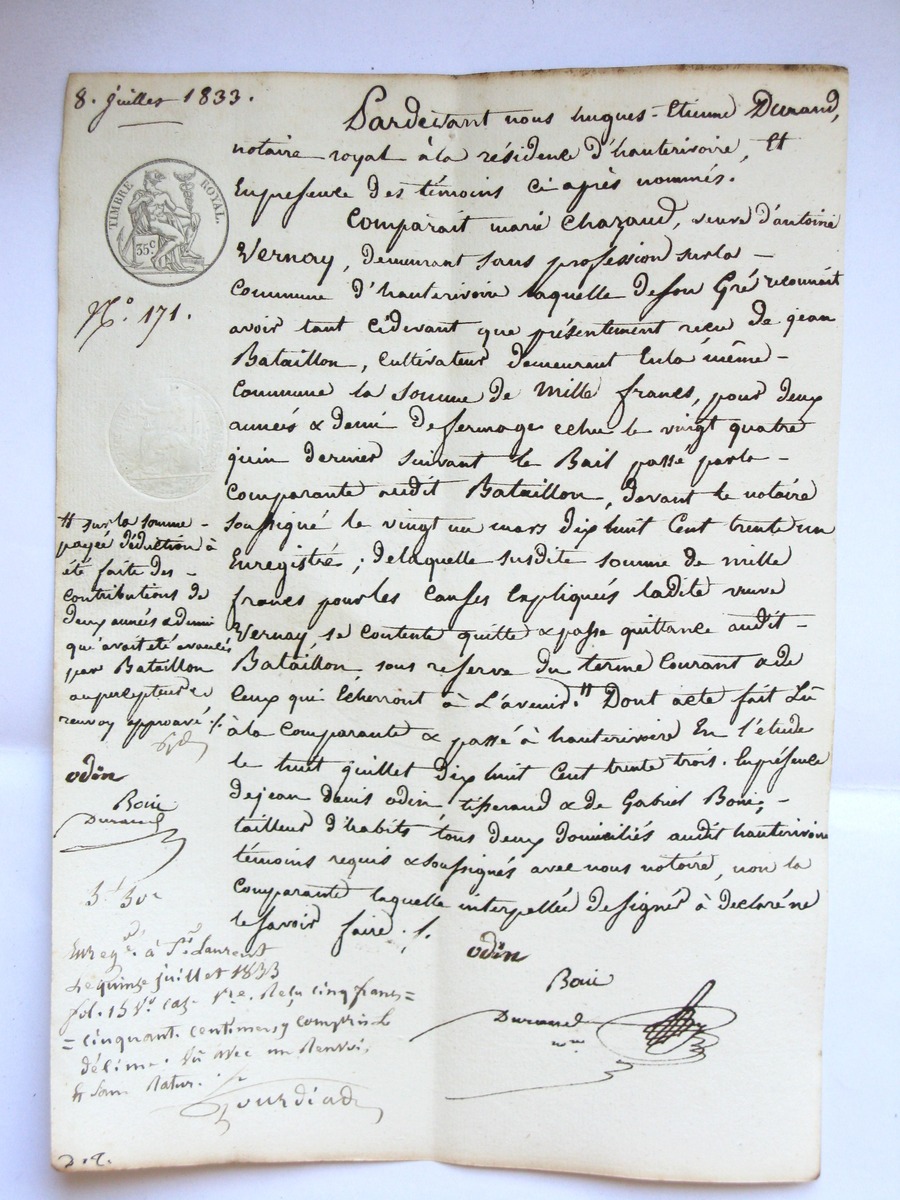 8. juillet 1833.
TIMBRE ROYAL.
35c
N.º 171.
Pardevant nous hugues-Etienne Durand,
notaire royal à la résidence d'hauterivoire, Et
En presence des témoins ci après nommés.
Comparait marie Chazaud, veuve d'antoine
Vernay, demeurant sans profession sur la
commune d'hauterivoire laquelle de son Gré reconnait
avoir tant cidevant que présentement reçu de jean
Bataillon, cultivateur demeurant En la même
commune la somme de mille francs, pour deux
années & demi de fermage echu le vingt quatre
juin dernier suivant le Bail passé par la
comparante audit Bataillon, devant le notaire
soussigné le vingt un mars dix huit Cent trente un
Enregistré ; de laquelle susdite somme de mille
francs pour les causes Expliqués ladite veuve
Vernay se contente quitte & passe quittance audit
Bataillon sous reserve du terme courant & de
ceux qui Echerront à L'avenir. # Dont acte fait Lû
à la comparante & passé à hauterivoire En l'étude
le huit juillet dix huit Cent trente trois. En présence
de jean denis odin tisserand & de Gabriel Boin,
tailleur d'habits tous deux domiciliés audit hauterivoire
témoins requis & soussignés avec nous notaire, non la
comparante laquelle interpellée de signer à declaré ne
le savoir faire ./.
odin
Boin
Durand
# sur la somme
payée déduction à
été faite des
contributions de
deux années & demi
qu'avait été avancés
par Bataillon
au percepteur
renvoy approuvé ./.
odin
Boin
Durand
5f 50c
Enregé. à St. Laurent
Le quinze juillet 1833
fol. 15 Vº. cas. Reçu cinq francs
cinquante centimes, y compris le
décime. Vû avec un Renvoi,
& sans Ratur.